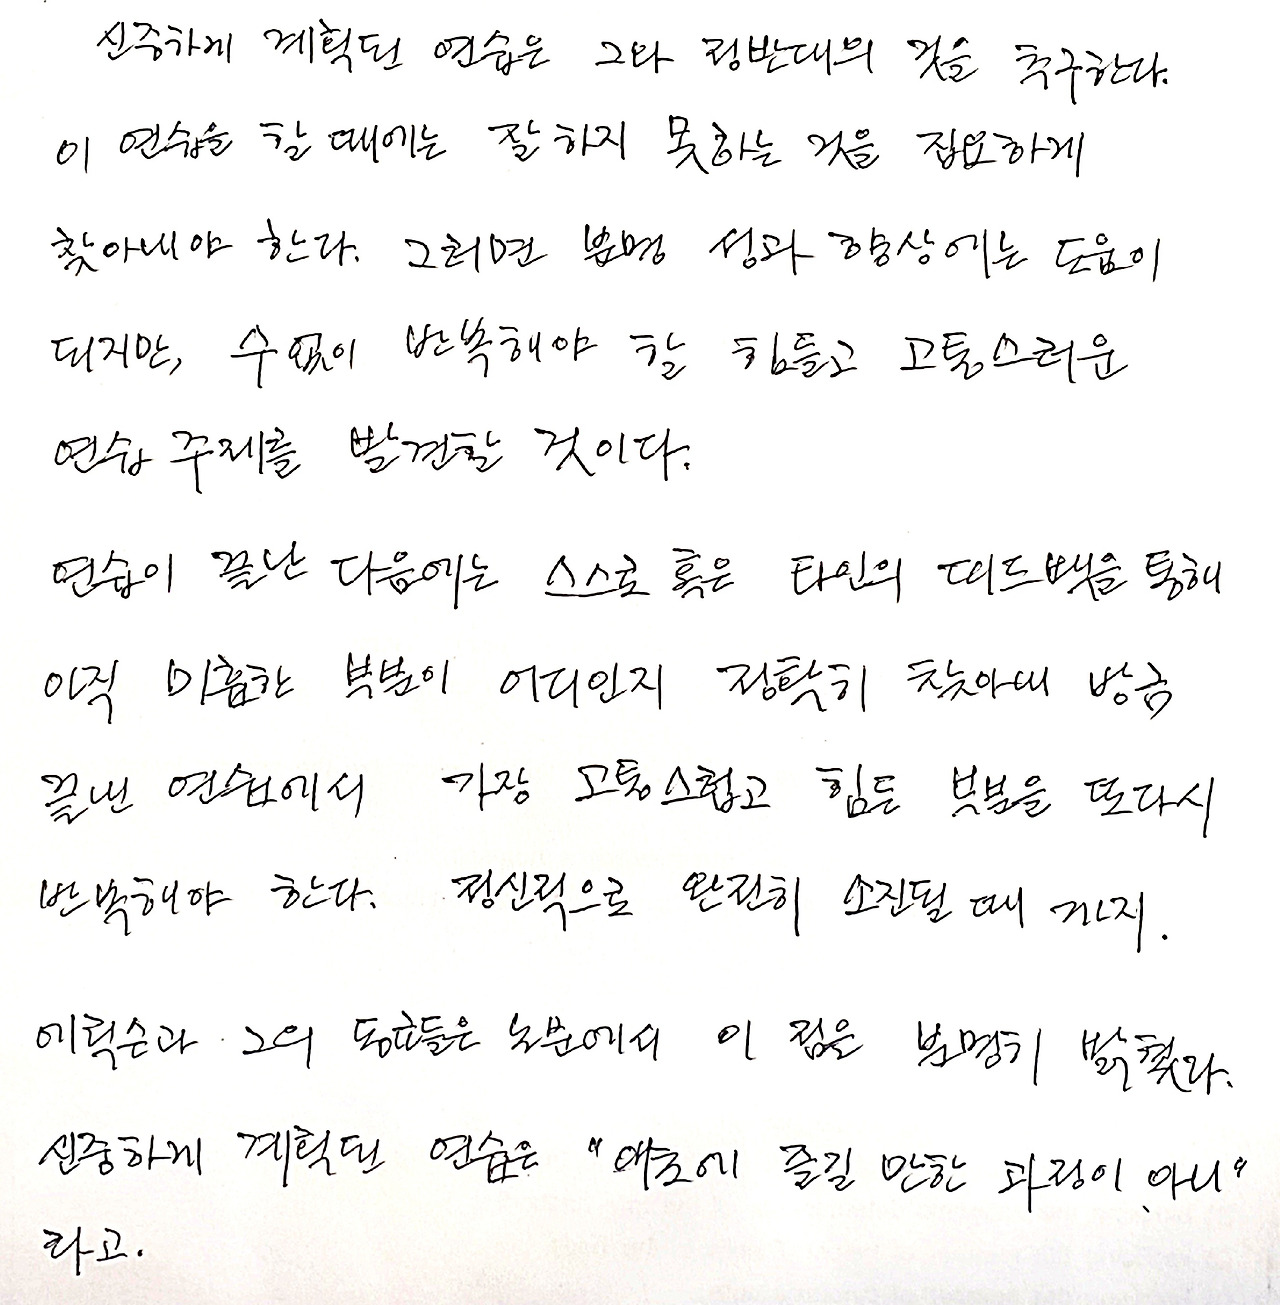 신중하게 계획된 연습은 그와 정반대의 것을 추구한다.
이 연습을 할 때에는 잘 하지 못하는 것을 집요하게
찾아내야 한다. 그러면 분명 성과 향상에는 도움이
되지만, 수없이 반복해야 할 힘들고 고통스러운
연습 주제를 발견할 것이다.
연습이 끝난 다음에는 스스로 혹은 타인의 피드백을 통해
아직 미흡한 부분이 어디인지 정확히 찾아내 방금
끝낸 연습에서 가장 고통스럽고 힘든 부분을 또다시
반복해야 한다. 정신적으로 완전히 소진될 때 까지.
에릭슨과 그의 동료들은 논문에서 이 점을 분명히 밝혔다.
신중하게 계획된 연습은 "애초에 즐길 만한 과정이 아니"
라고.